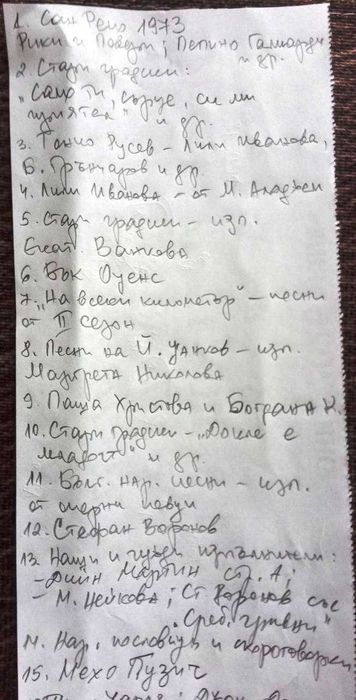 1. Сан Ремо 1973
Рики и Повери; Пепино Галиарди
и др.
2. Стари градски:
"Само ти, сърце, си ми
приятел" и др.
3. Тончо Русев - Лили Иванова,
Б. Грънчаров и др.
4. Лили Иванова - от М. Аладжем
5. Стари градски - изп.
Екат. Ванкова
6. Бък Оуенс
7. "На всеки километър" - песни
от II сезон
8. Песни на Й. Цанков - изп.
Маргрета Николова
9. Паша Христова и Богдана К.
10. Стари градски - "Докле е
младост" и др.
11. Бълг. нар. песни - изп.
от оперни певци
12. Стефан Воронов
13. Наши и чужди изпълнители:
- Дийн Мартин стр. А;
- М. Нейкова; Ст. Воронов със
"Среб. гривни"
14. Нар. пословици и скороговорки
15. Мехо Пузич